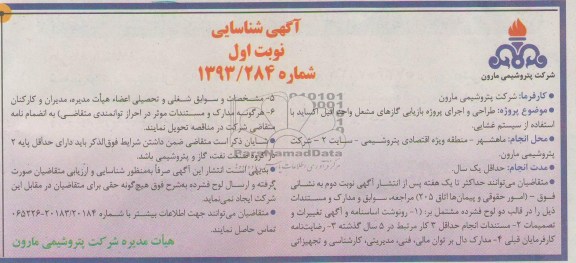 آگهی شناسایی
نوبت اول
شماره ۱۳۹۳/۲۸۴
شرکت پتروشیمی مارون
● کارفرما: شرکت پتروشیمی مارون
● موضوع پروژه: طراحی و اجرای پروژه بازیابی گازهای مشعل واحد اتیلن اکساید با
استفاده از سیستم غشایی.
● محل انجام: ماهشهر - منطقه ویژه اقتصادی پتروشیمی - سایت ۲ - شرکت
پتروشیمی مارون.
● مدت انجام: حداقل یک سال.
● متقاضیان می‌توانند حداکثر تا یک هفته پس از انتشار آگهی نوبت دوم به نشانی
فوق - (امور حقوقی و پیمان‌ها اتاق ۲۰۵) مراجعه، سوابق و مدارک و مستندات
ذیل را در قالب دو لوح فشرده مشتمل بر: (۱- رونوشت اساسنامه و آگهی تغییرات و
تصمیمات ۲- مستندات انجام حداقل ۲ کار مرتبط در ۵ سال گذشته ۳- رضایت‌نامه
کارفرمایان قبلی ۴- مدارک دال بر توان مالی، فنی، مدیریتی، کارشناسی و تجهیزاتی
۵- مشخصات و سوابق شغلی و تحصیلی اعضاء هیأت مدیره، مدیران و کارکنان
۶- هرگونه مدارک و مستندات موثر در احراز توانمندی متقاضی) به انضمام نامه
متقاضی شرکت در مناقصه تحویل نمایند.
شایان ذکر است متقاضی ضمن داشتن شرایط فوق‌الذکر باید دارای حداقل پایه ۲
در گروه نفت، گاز و پتروشیمی باشد.
بدیهی است انتشار این آگهی صرفاً به‌منظور شناسایی و ارزیابی متقاضیان صورت
گرفته و ارسال لوح فشرده به‌شرح فوق هیچ‌گونه حقی برای متقاضیان در مقابل این
شرکت ایجاد نمی‌نماید.
● متقاضیان می‌توانند جهت اطلاعات بیشتر با شماره ۲۰۱۸۳/۲۰۱۸۴-۰۶۵۲۲۶
تماس حاصل نمایند.
هیأت مدیره شرکت پتروشیمی مارون
ParsNamadData